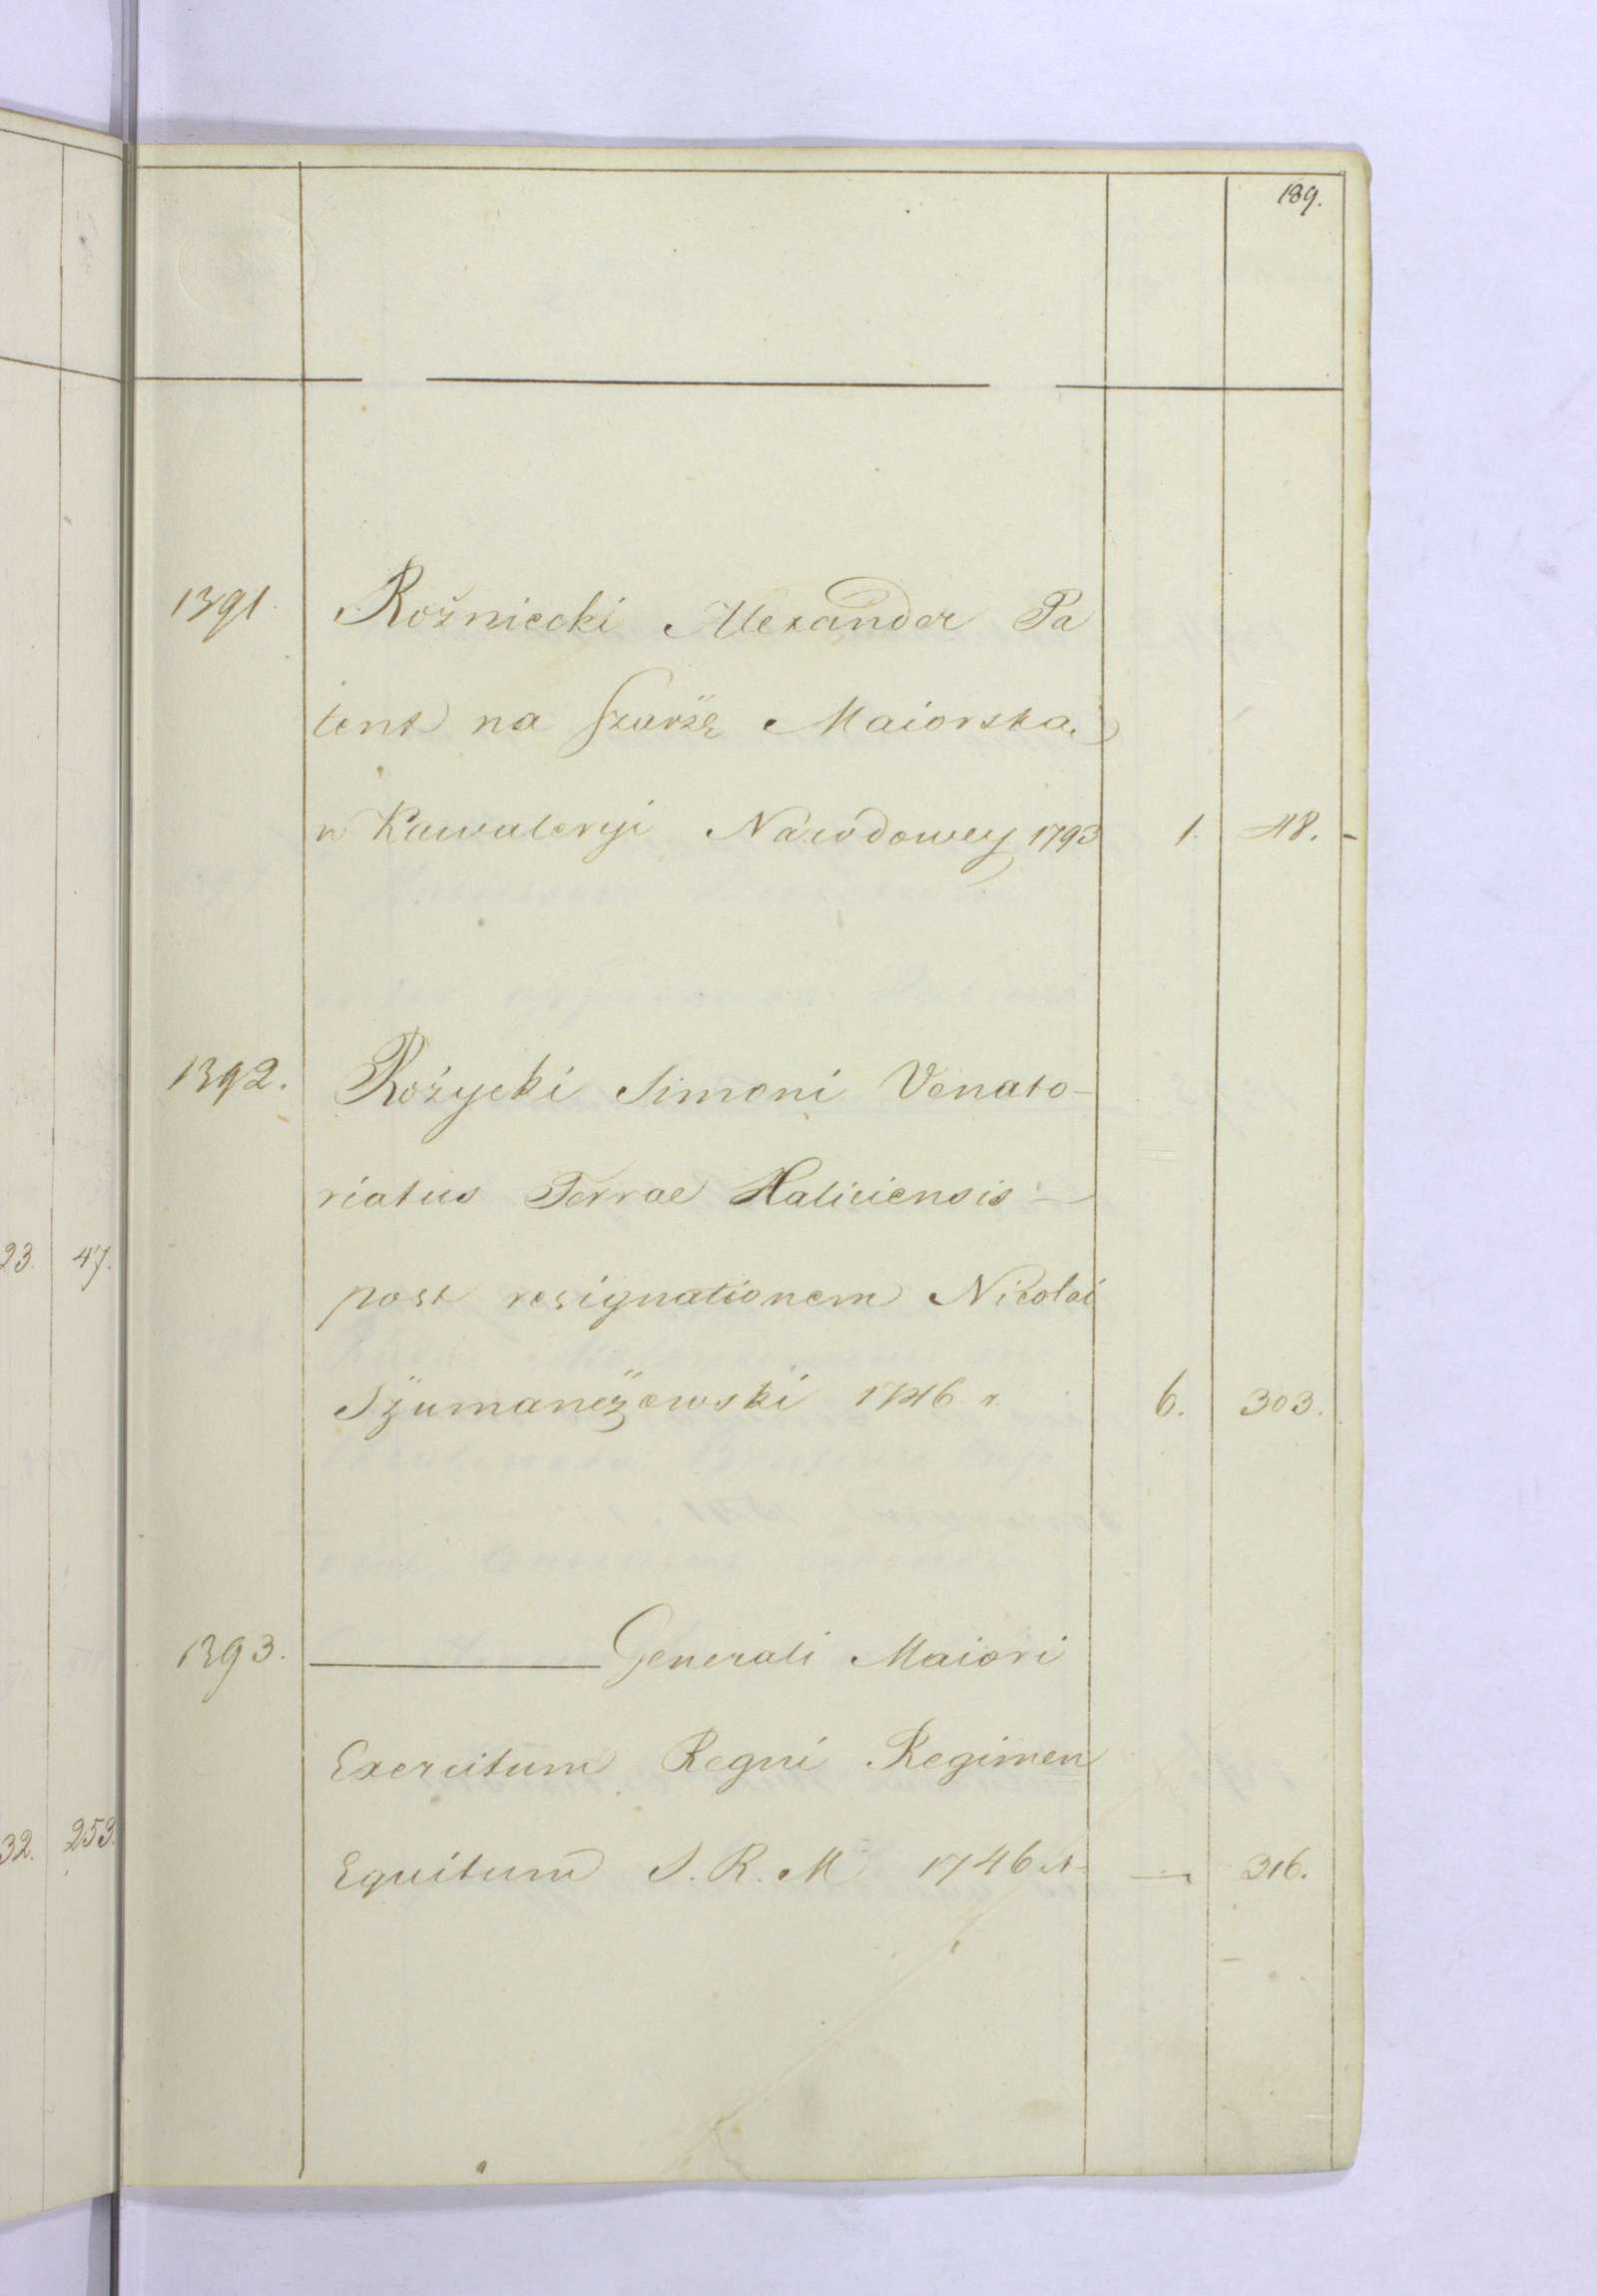 189.
1391. Rożniecki Alexander Pa
tent na Szarżę Maiorską
w Kawaleryi Narodowey 1793 1. 48.
1392. Rożycki Simoni Venato-
riatus Terrae Haliciensis —
post resignationem Nicolai
Szumańczewski 1746 r. 6. 303.
23. 47.
1393. ——— Generali Maiori
Exercitum Regni Regimen
Equitum S. R. M 1746 r. — 316.
32. 253.